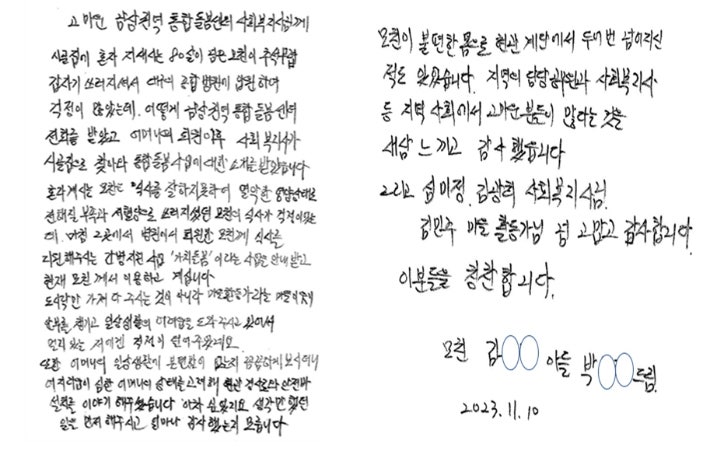 고마운 남상권역 통합돌봄센터 사회복지사님께
시골집에 혼자 지내시는 80살이 넘은 모친이 추석무렵
갑자기 쓰러지셔서 대구의 종합병원에 입원하여
걱정이 많았는데, 어떻게 남상권역 통합돌봄센터
전화를 받았고 어머니의 퇴원이후 사회복지사가
시골집으로 찾아와 통합돌봄사업에 대한 소개를 받았습니다
혼자계시는 모친은 식사를 잘하지못하여 열악한 영양상태로
전해질 부족과 저혈압으로 쓰러지셨던 모친의 식사가 걱정이었는
데, 마침 그곳에서 병원에서 퇴원한 모친께 식사를
지원해주시는 간병지원 사업 '가치돌봄' 이라는 사업을 안내 받고
현재 모친께서 이용하고 계십니다
도시락만 가져다 주시는 것이 아니라 마을활동가라는 마을의
안부를 챙기고 일상생활의 어려움을 도와주시고 있어서
멀리 있는 저에겐 걱정이 덜어주었네요.
또한 어머니의 일상생활이 불편함이 있는지 꼼꼼하게 보시더니
어지러움이 심한 어머니의 상태를 고려해 현관 경사로와 안전바
설치를 이야기 해주셨습니다 아차 싶었지요 생각만 했던
일을 먼저 해주시고 얼마나 감사했는지 모릅니다
모친이 불편한 몸으로 현관 계단에서 두어번 넘어지신
적도 있었습니다. 지역의 담당 사회복지사
등 지역 사회에서 고마운 분들이 많다는 것을
새삼 느끼고 감사했습니다
그리고 섭미정, 김광희 사회복지사님,
김민주 마을 활동가님 넘 고맙고 감사합니다
이분들을 칭찬합니다.
모친 김○○ 아들 박○○드림.
2023.11.10